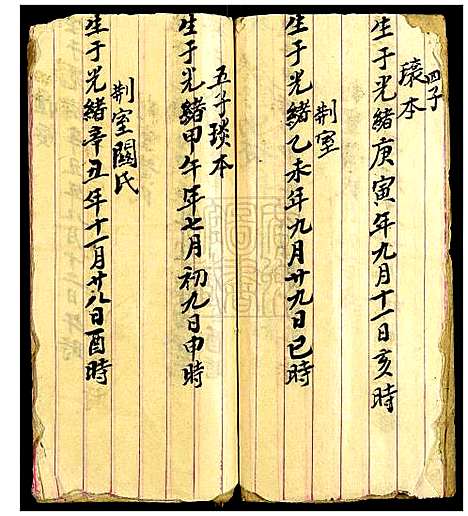 四子
瓌本
生于光緒庚寅年九月十一日亥時
荆室
生于光緒乙未年九月廿九日巳時
五子琰本
生于光緒甲午年七月初九日申時
荆室闗氏
生于光緒辛丑年十一月廿八日酉時